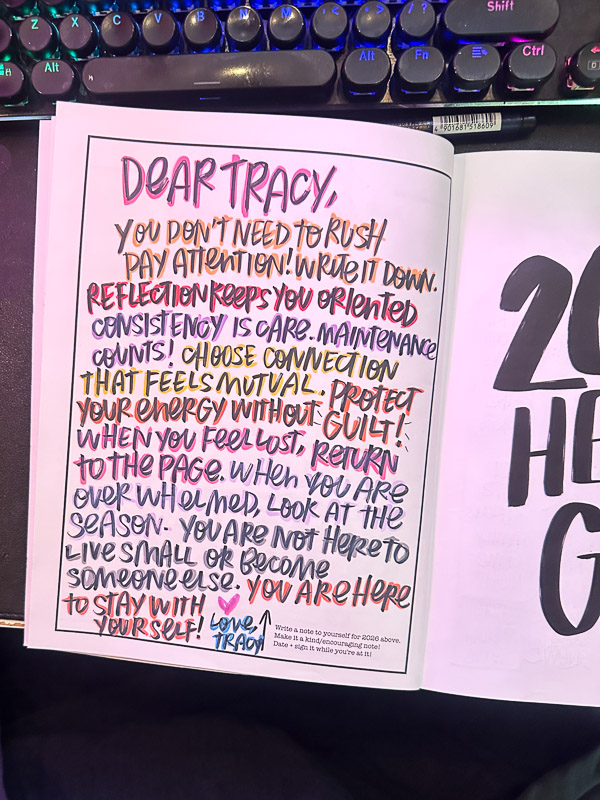 Shift
Z X C V B N M < > / ?
Alt Alt Fn Ctrl
4 901681 518609
DEAR TRACY,
YOU DON'T NEED TO RUSH
PAY ATTENTION! WRITE IT DOWN.
REFLECTION KEEPS YOU ORIENTED
CONSISTENCY IS CARE. MAINTENANCE
COUNTS! CHOOSE CONNECTION
THAT FEELS MUTUAL. PROTECT
YOUR ENERGY WITHOUT GUILT!
WHEN YOU FEEL LOST, RETURN
TO THE PAGE. WHEN YOU ARE
OVERWHELMED, LOOK AT THE
SEASON. YOU ARE NOT HERE TO
LIVE SMALL OR BECOME
SOMEONE ELSE. YOU ARE HERE
TO STAY WITH
YOURSELF!
LOVE,
TRACY
Write a note to yourself for 2026 above.
Make it a kind/encouraging note!
Date + sign it while you're at it!
20
HE
G